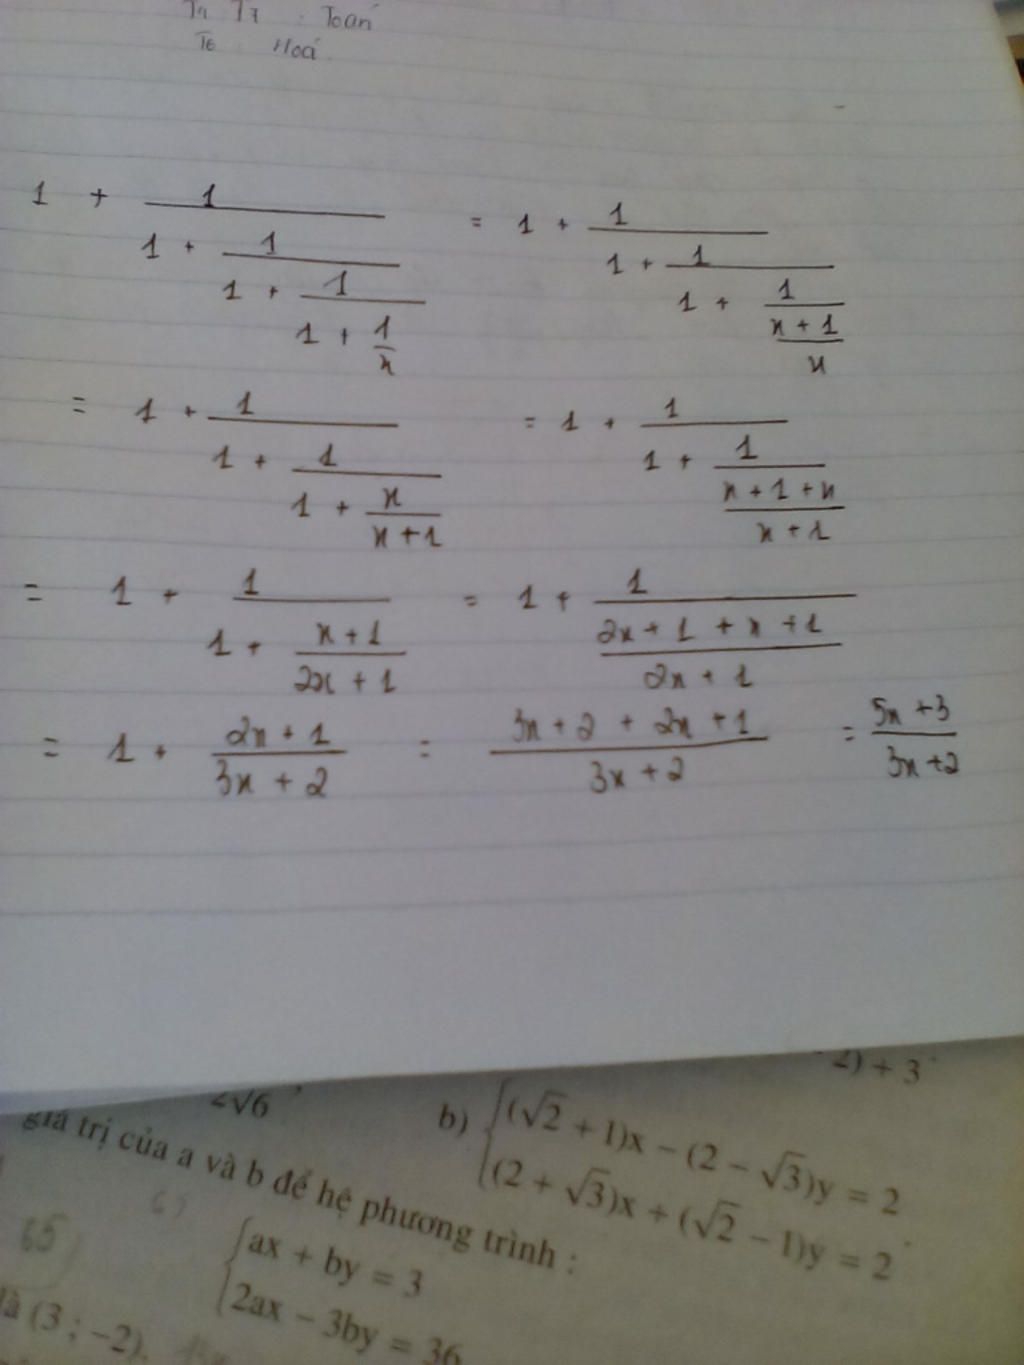 T7 : Toán
Hoá
1 + 1/(1 + 1/(1 + 1/(1 + 1/x))) = 1 + 1/(1 + 1/(1 + 1/((x + 1)/x)))
= 1 + 1/(1 + 1/(1 + x/(x + 1))) = 1 + 1/(1 + 1/((x + 1 + x)/(x + 1)))
= 1 + 1/(1 + (x + 1)/(2x + 1)) = 1 + 1/((2x + 1 + x + 1)/(2x + 1))
= 1 + (2x + 1)/(3x + 2) = (3x + 2 + 2x + 1)/(3x + 2) = (5x + 3)/(3x + 2)
2) + 3
2√6
b) (√2 + 1)x − (2 − √3)y = 2
(2 + √3)x + (√2 − 1)y = 2
giá trị của a và b để hệ phương trình :
65
ax + by = 3
2ax − 3by = 36
là (3 ; −2).